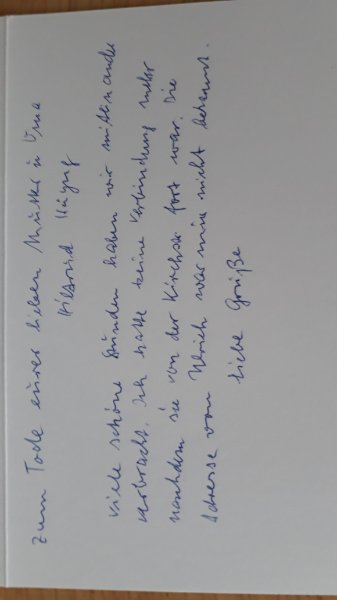 zum Tode eurer lieben Mutter u Oma
viele schöne Stunden haben wir miteinander
verbracht. Ich hatte keine Verbindung mehr
nachdem sie von der Kirchstr fort war. Die
Adresse von Ulrich war mir nicht bekannt.
Liebe Grüße